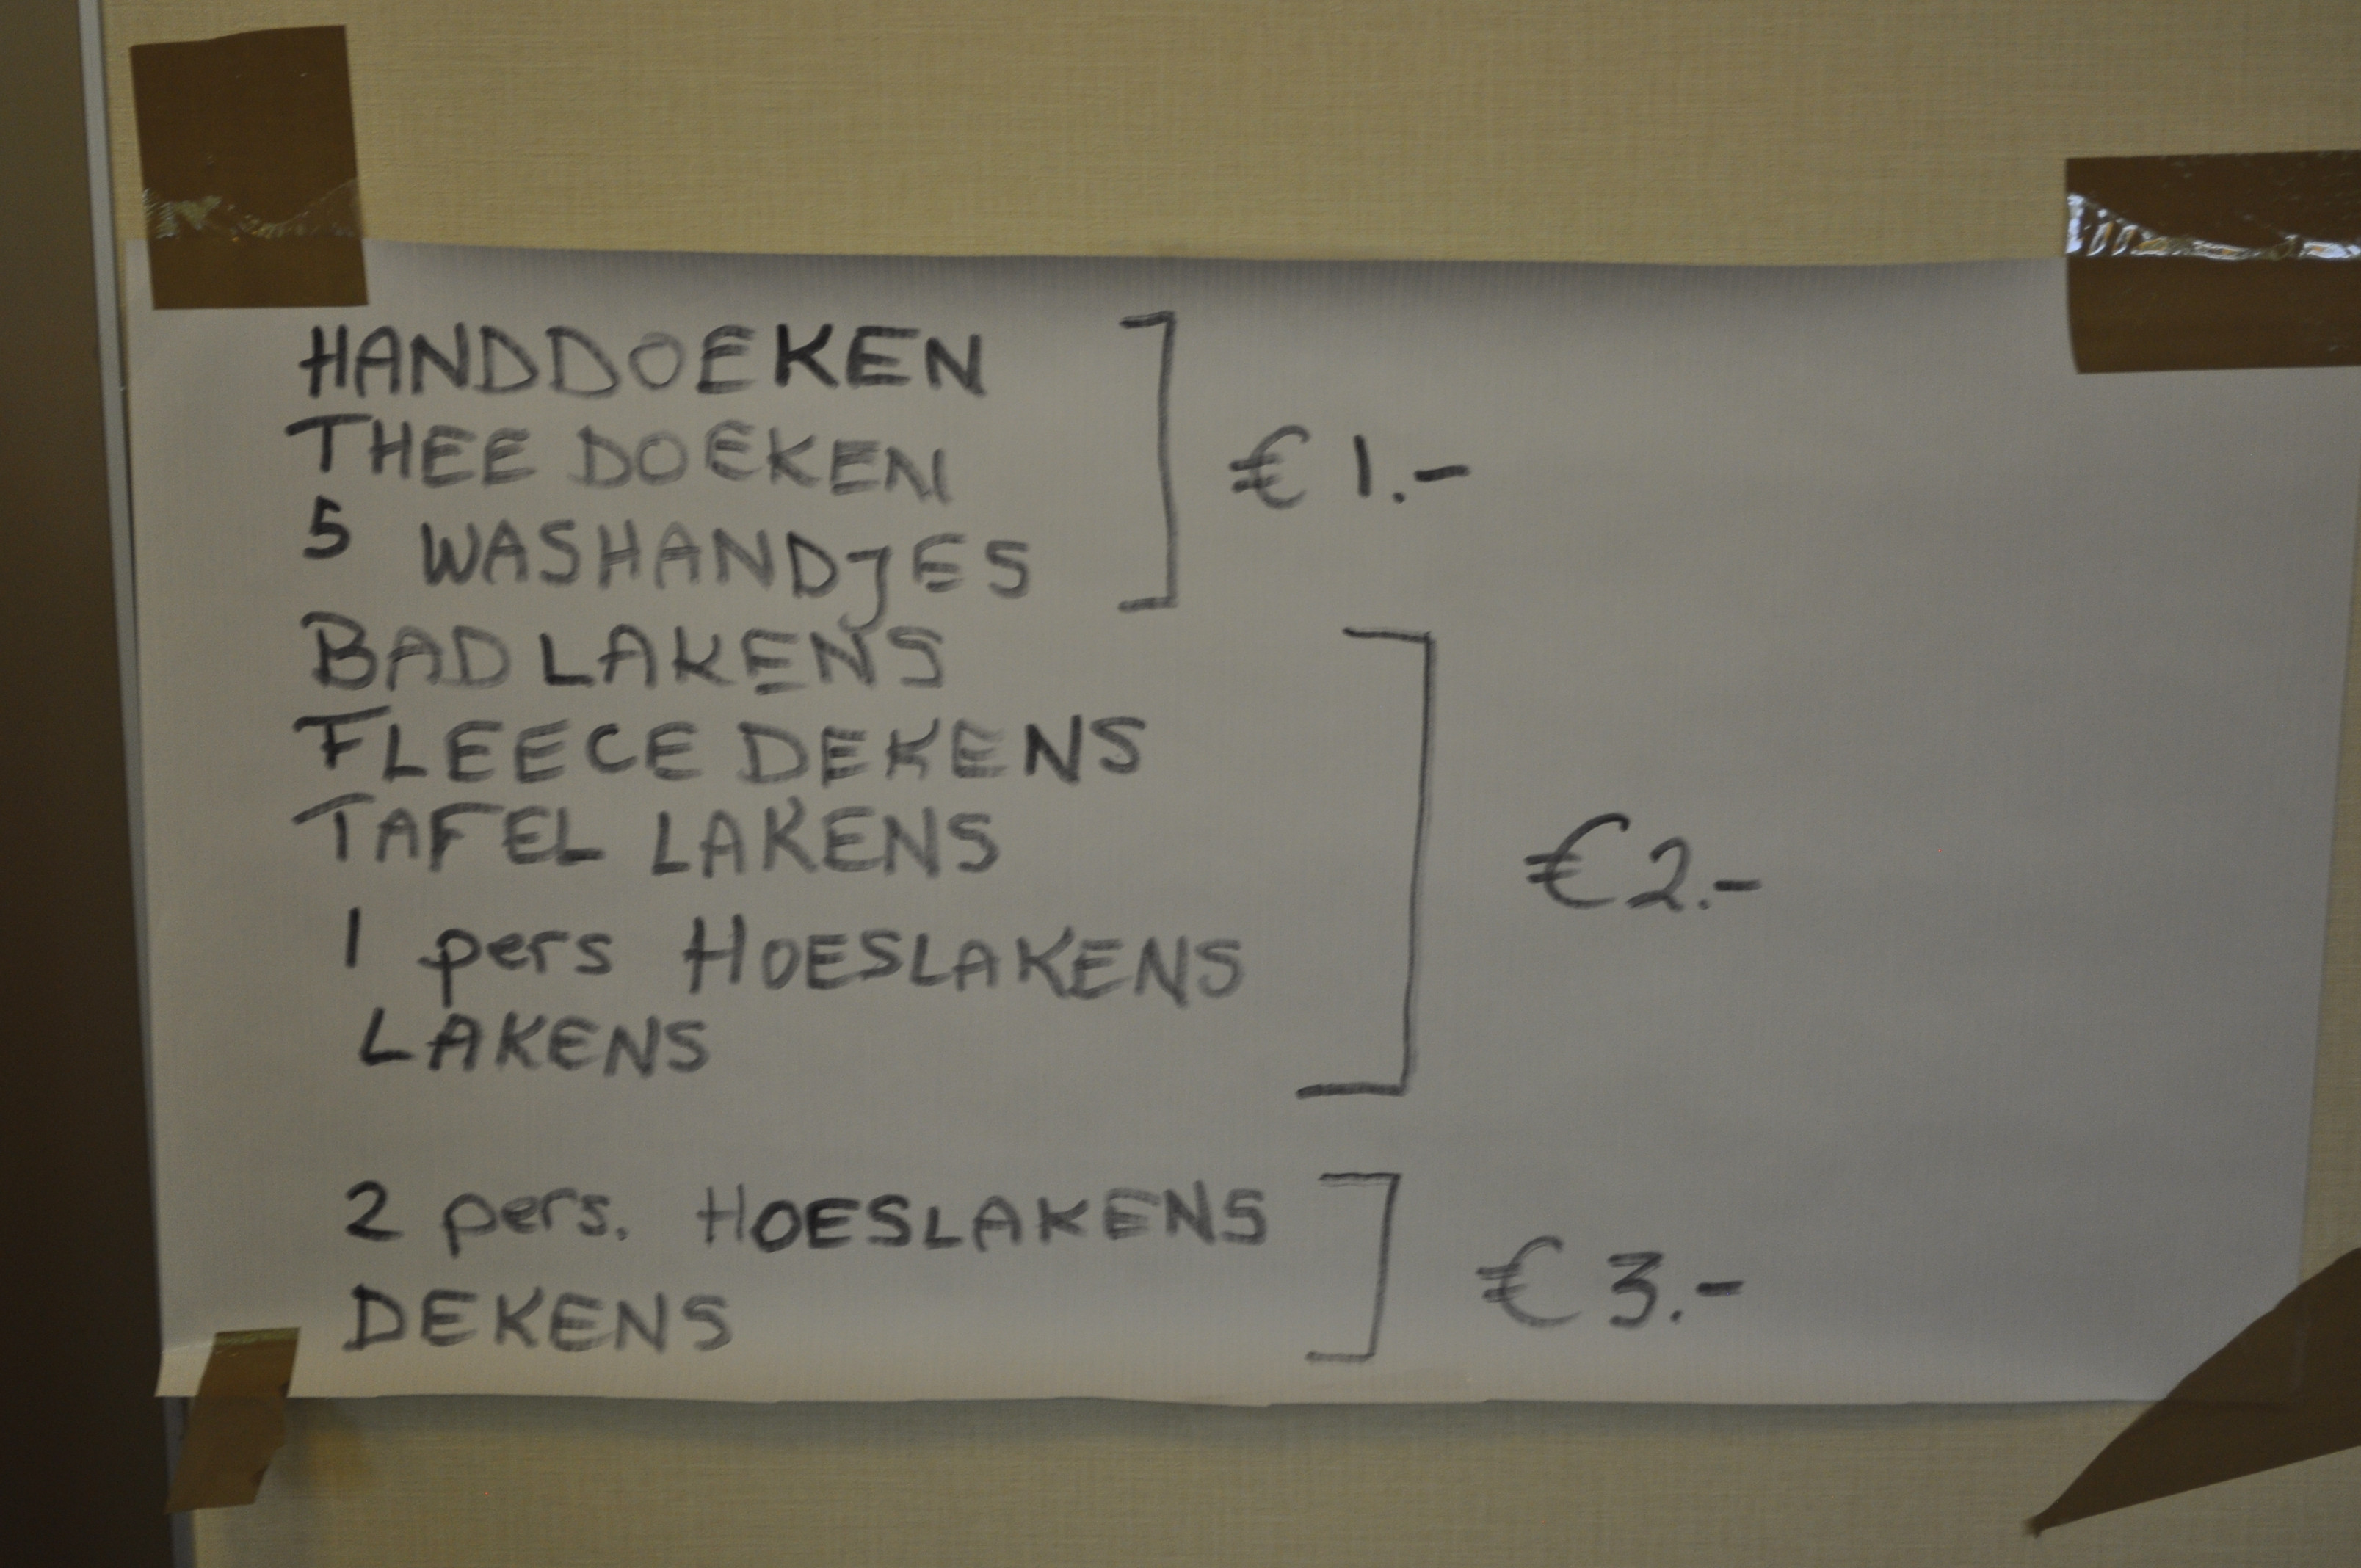 HANDDOEKEN
THEE DOEKEN
5 WASHANDjES
€ 1.-
BADLAKENS
FLEECE DEKENS
TAFEL LAKENS
1 pers HOESLAKENS
LAKENS
€2.-
2 pers. HOESLAKENS
DEKENS
€ 3.-